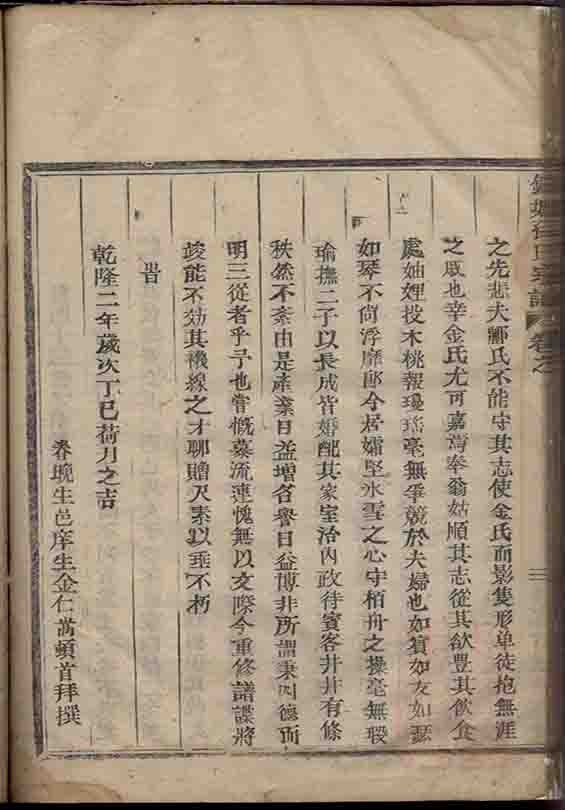 之先悲夫鄭氏不能守其志使金氏而影隻形单徒抱無涯
之戚也幸金氏尤可嘉焉奉翁姑順其志從其欲豐其飲食
處妯娌投木桃報瓊瑶毫無爭競於夫婦也如賓如友如瑟
如琴不尚浮靡即今居孀堅氷雪之心守栢舟之操毫無瑕
瑜撫二子以長成皆婚配其家室洽內政待賓客井井有條
秩然不紊由是產業日益增名譽日益博非所謂秉四德而
明三從者乎予也嘗慨慕流連愧無以文際今重修譜諜將
竣能不効其機線之才聊贈尺素以垂不朽
旹
乾隆二年歲次丁巳荷月之吉
眷晚生邑庠生金仁嵩頓首拜撰
卷之